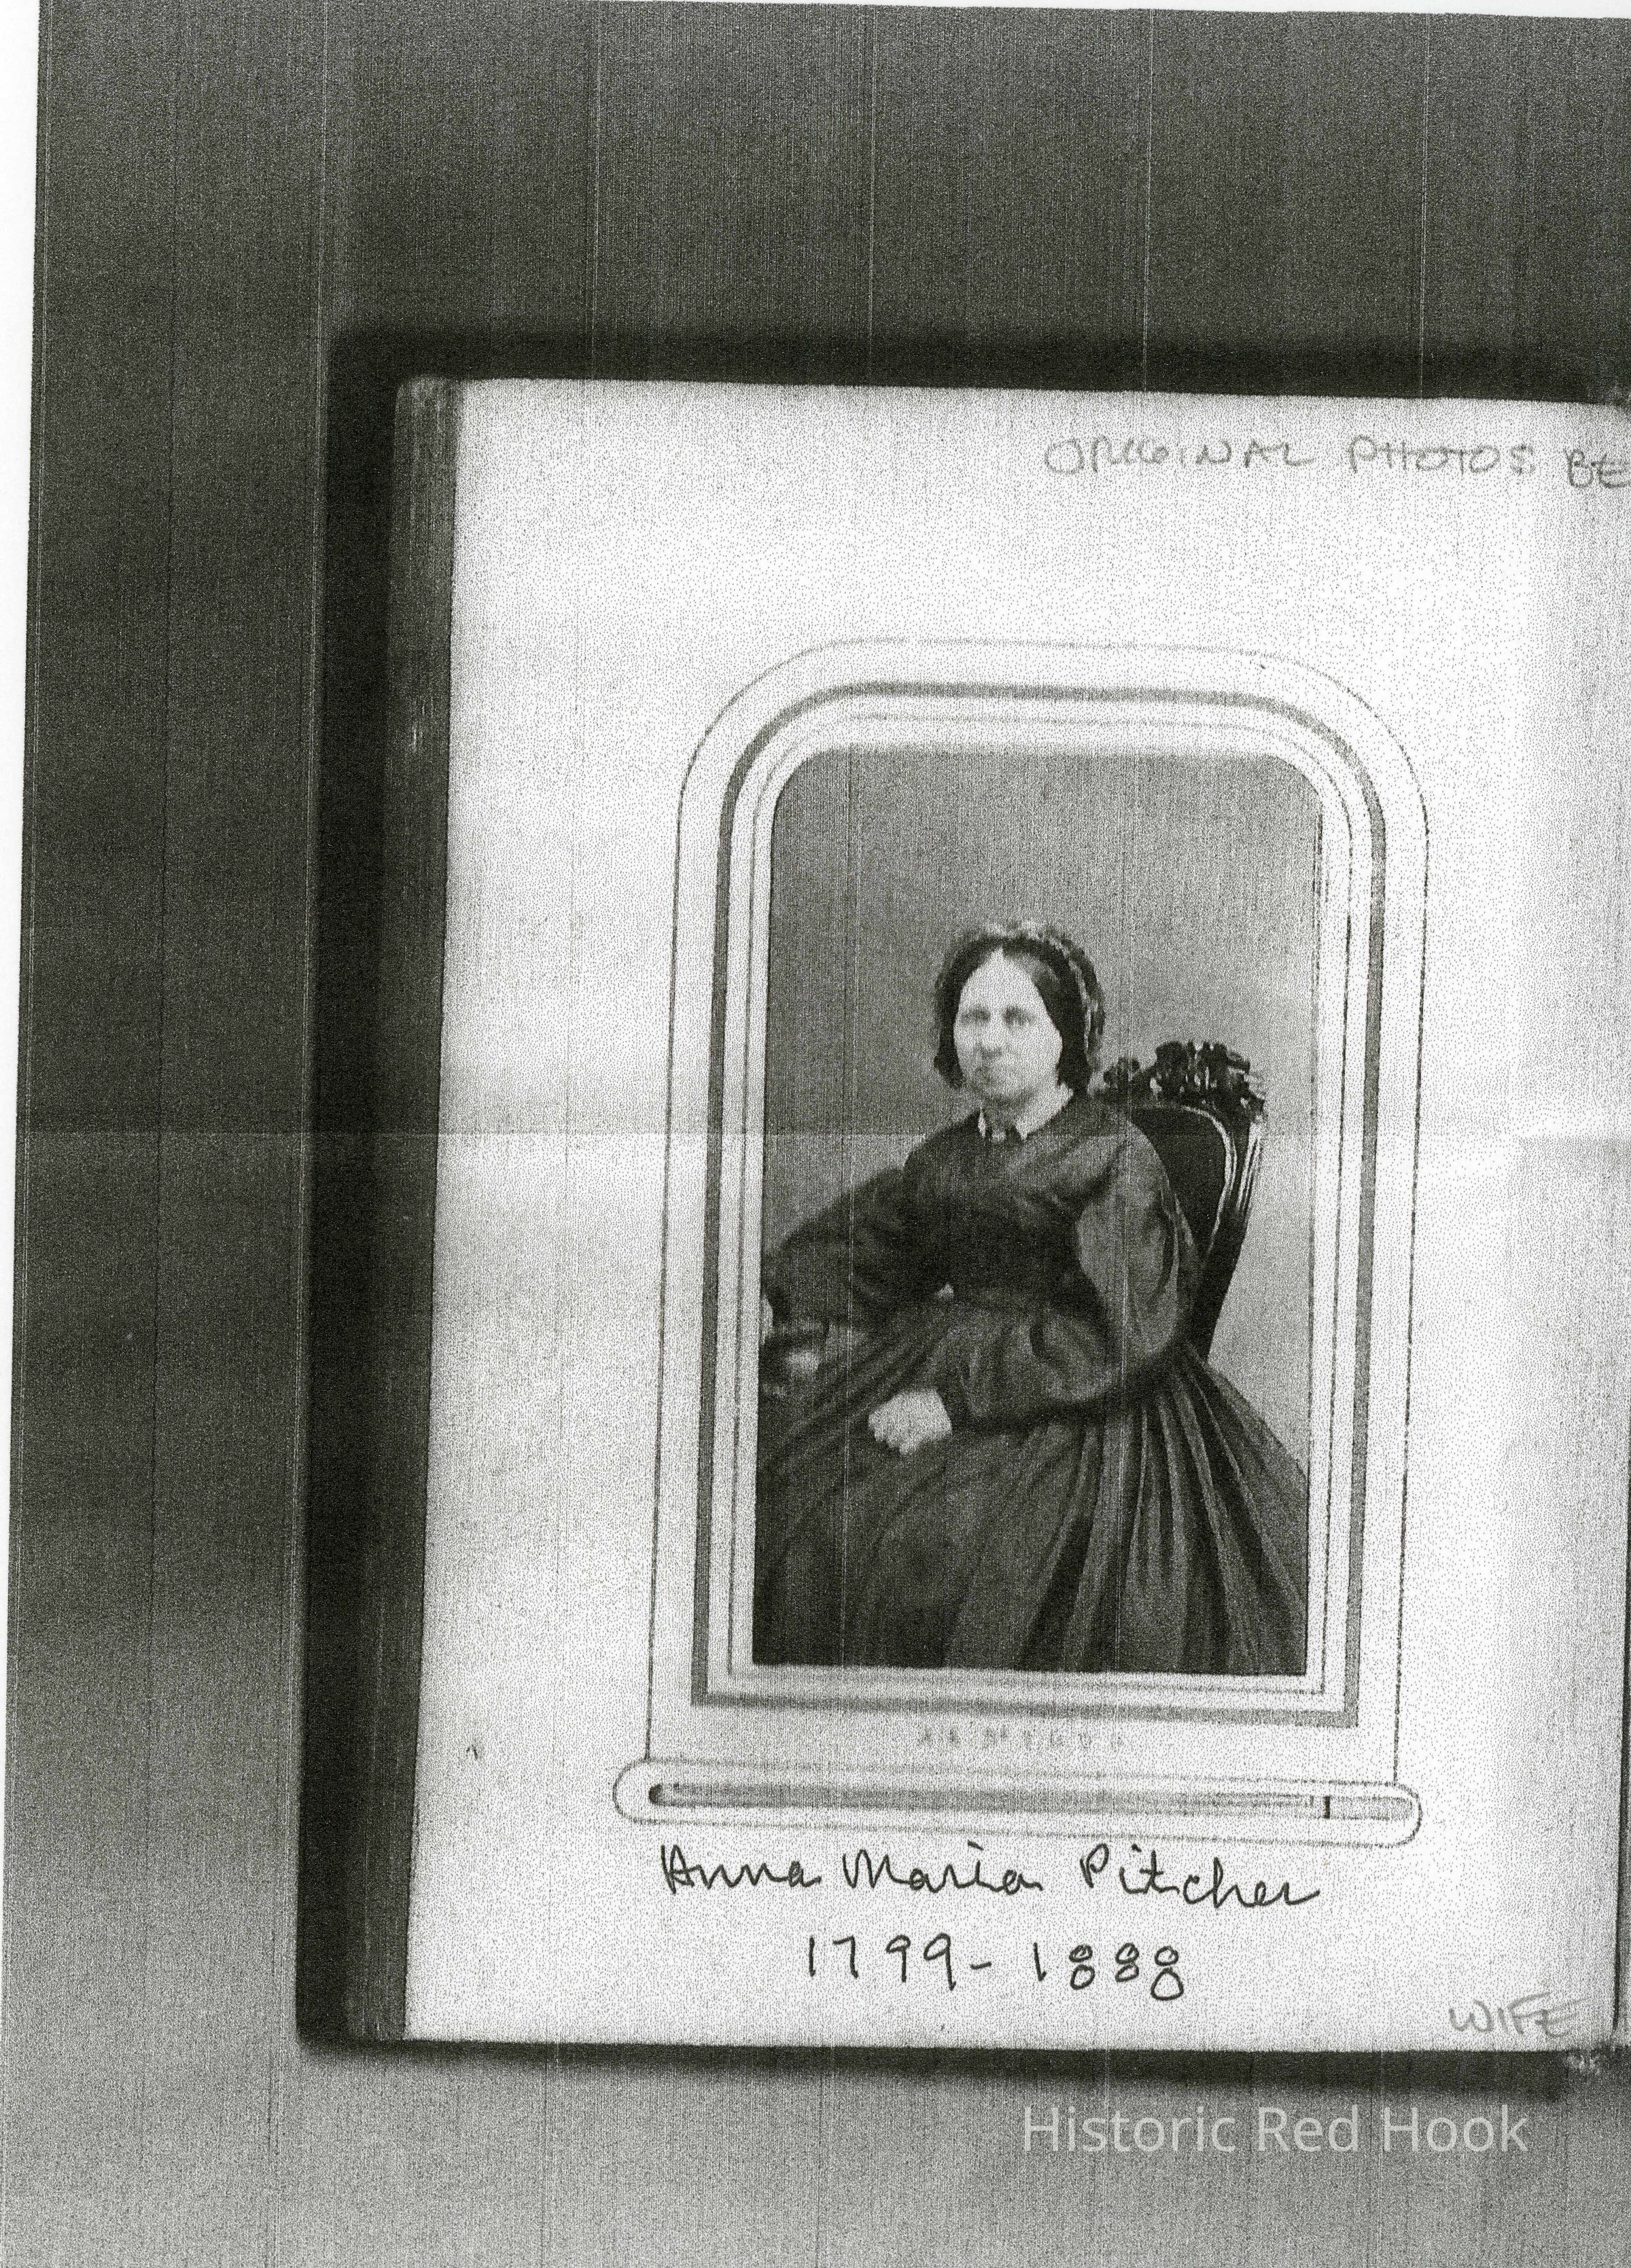 ORIGINAL PHOTOS BE
Anna Maria Pitcher
1799-1888
WIFE
Historic Red Hook